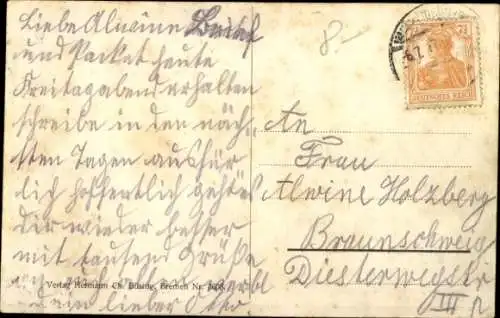 Liebe Alwine Brief
und Packet heute
Freitagabend erhalten
schreibe in den näch-
sten Tagen ausführ
lich hoffentlich geht es
dir wieder besser
mit tausend Grüße
dein lieber Otto.
Verlag Hermann Bremen Nr.
DEUTSCHES REICH
An
Frau
Alwine Holzberg
Braunschweig
Diesterwegstr
III